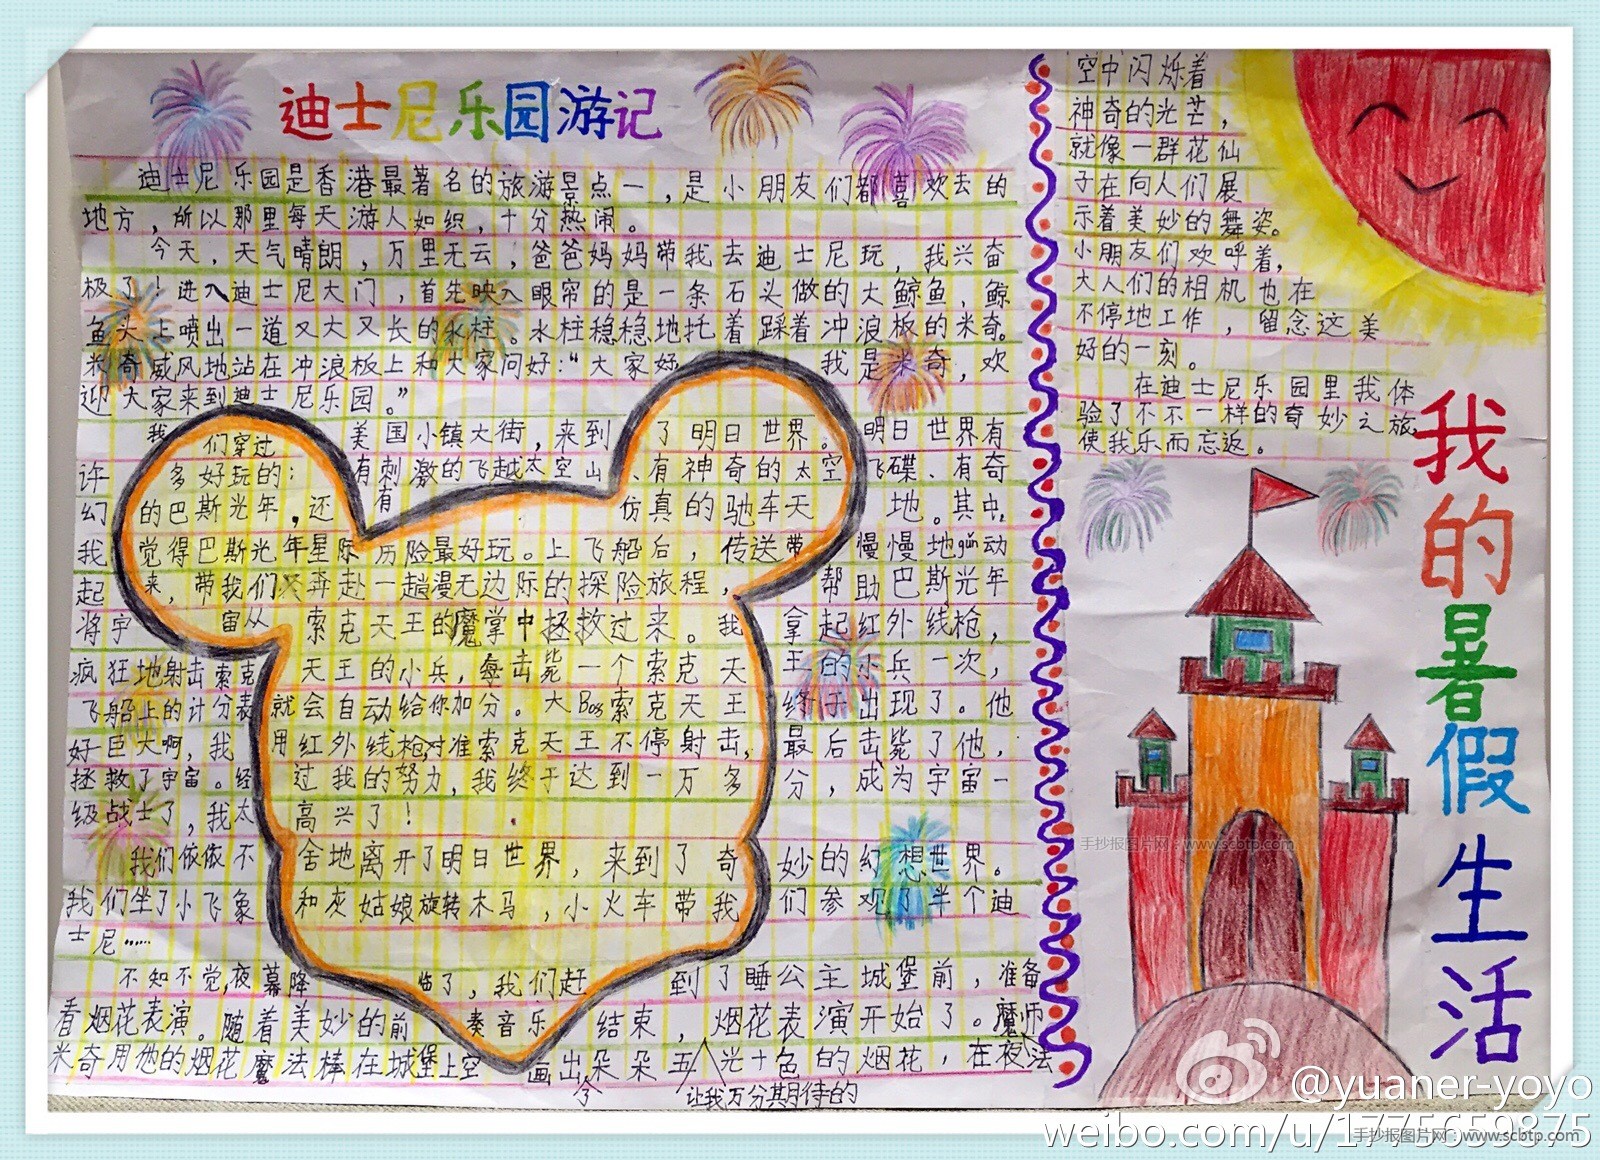 迪士尼乐园游记
迪士尼乐园是香港最著名的旅游景点一,是小朋友们都喜欢去的
地方,所以那里每天游人如织,十分热闹。
今天,天气晴朗,万里无云,爸爸妈妈带我去迪士尼玩,我兴奋
极了!进入迪士尼大门,首先映入眼帘的是一条石头做的大鲸鱼,鲸
鱼头上喷出一道又大又长的水柱。水柱稳稳地托着踩着冲浪板的米奇。
米奇威风地站在冲浪板上和大家问好:“大家好 我是米奇,欢
迎大家来到迪士尼乐园。”
我们穿过美国小镇大街,来到了明日世界。明日世界有
许多好玩的:有刺激的飞越太空山、有神奇的太空飞碟、有奇
幻的巴斯光年,还有仿真的驰车天地。其中,
我觉得巴斯光年星际历险最好玩。上飞船后,传送带慢慢地gǔn动
起来,带我们奔赴一趟漫无边际的探险旅程,帮助巴斯光年
将宇宙从索克天王的魔掌中拯救过来。我拿起红外线枪,
疯狂地射击索克天王的小兵,每击毙一个索克天王的小兵一次,
飞船上的计分表就会自动给你加分。大Bos索克天王终于出现了。他
好巨大啊,我用红外线枪对准索克天王不停射击,最后击毙了他,
拯救了宇宙。经过我的努力,我终于达到一万多分,成为宇宙一
级战士了,我太高兴了!
我们依依不舍地离开了明日世界,来到了奇妙的幻想世界。
我们坐了小飞象和灰姑娘旋转木马,小火车带我们参观了半个迪
士尼……
不知不觉,夜幕降临了,我们赶到了睡公主城堡前,准备
看烟花表演。随着美妙的前奏音乐结束,烟花表演开始了。魔师
米奇用他的烟花魔法棒在城堡上空画出朵朵五光十色的烟花,在夜法
令让我万分期待的
空中闪烁着
神奇的光芒,
就像一群花仙
子在向人们展
示着美妙的舞姿。
小朋友们欢呼着,
大人们的相机也在
不停地工作,留念这美
好的一刻。
在迪士尼乐园里我体
验了不不一样的奇妙之旅,
使我乐而忘返。
我的暑假生活
手抄报图片网:www.scbtp.com
@yuaner-yoyo
weibo.com/u/1775659875
手抄报图片网:www.scbtp.com